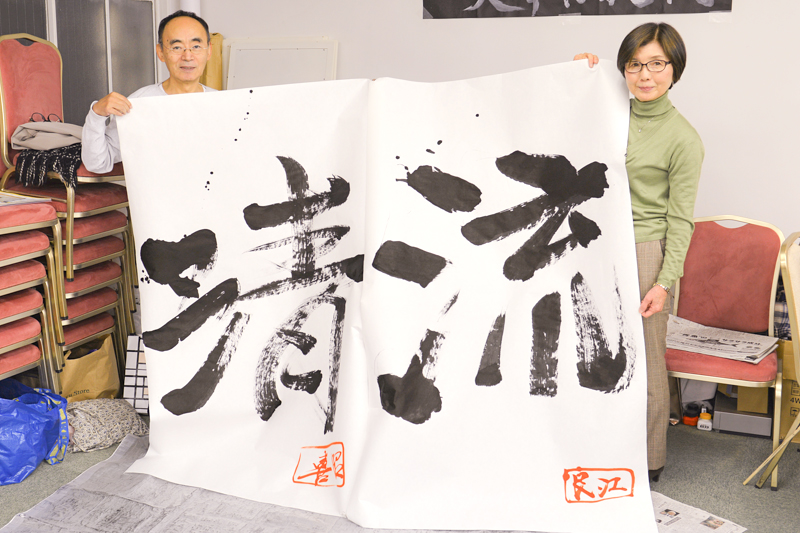 清流
喜
良江